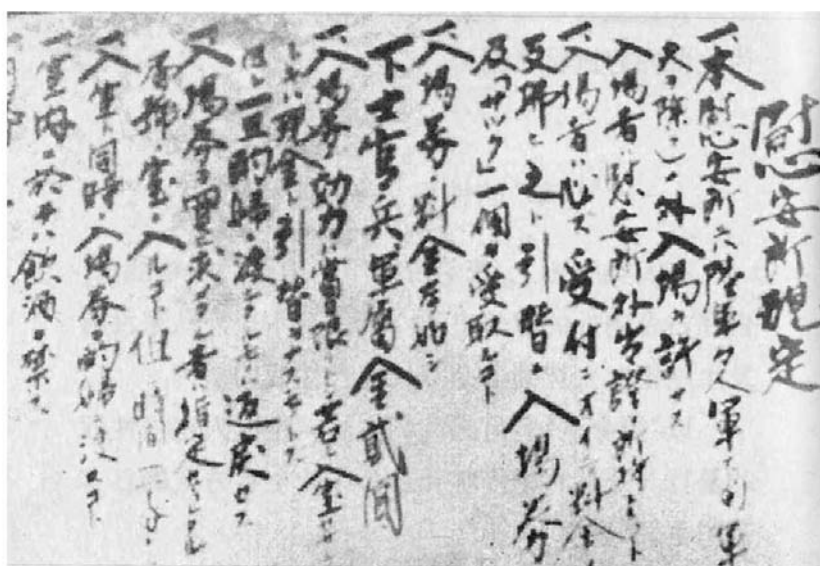 慰安所規定
一、本慰安所ニハ陸軍々人軍属軍
夫ノ除ク外入場ヲ許サス
入場者ハ慰安所外出證ヲ所持スルコト
一、入場者ハ必ス受付ニオイテ料金ヲ
支拂ヒ之ト引替ニ入場券
及「サック」一個ヲ受取ルコト
一、入場券ノ料金左ノ如シ
下士官、兵、軍属 金貳圓
一、入場券ノ効力ハ當日限リトシ若シ入室セサル
トキハ現金ト引替ヲナスモノトス
但シ一旦酌婦ニ渡シタルモノハ返戻セス
一、入場券ヲ買ヒ求メタル者ハ指定セラレタル
番號ノ室ニ入ルコト但シ時間ハ三十分トス
一、入室ト同時ニ入場券ヲ酌婦ニ渡スコト
一、室内ニ於テハ飲酒ヲ禁ス